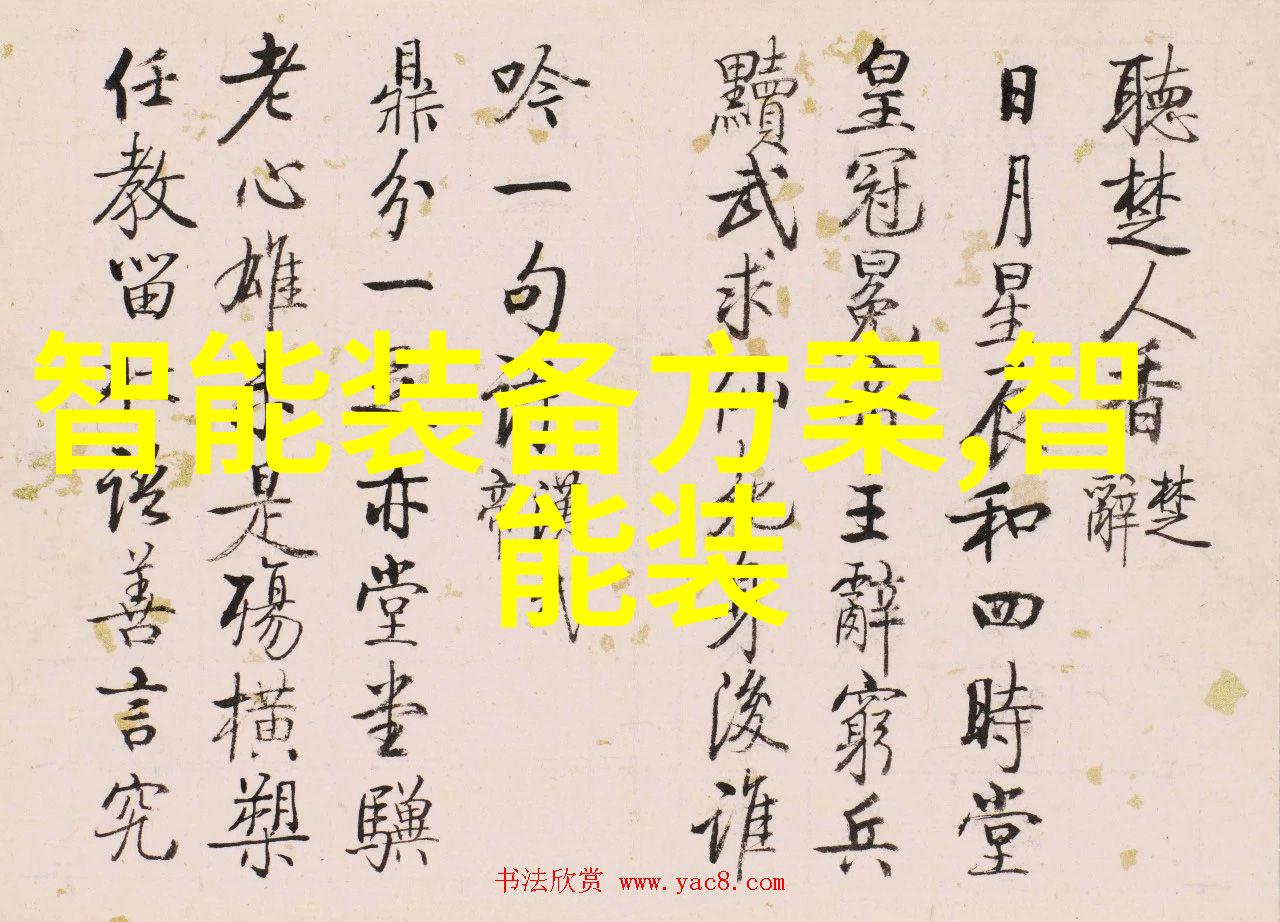 聽楚人香
楚辭
日月星辰和四時堂
皇冠冕王辭窮兵
黷武求仙身後誰
吟一句
漢武帝
鼎分一亦堂堂驥
老心雄未是殤橫槊
任教留語善言究
智能装备方案,智
能装
书法欣赏 www.yac8.com